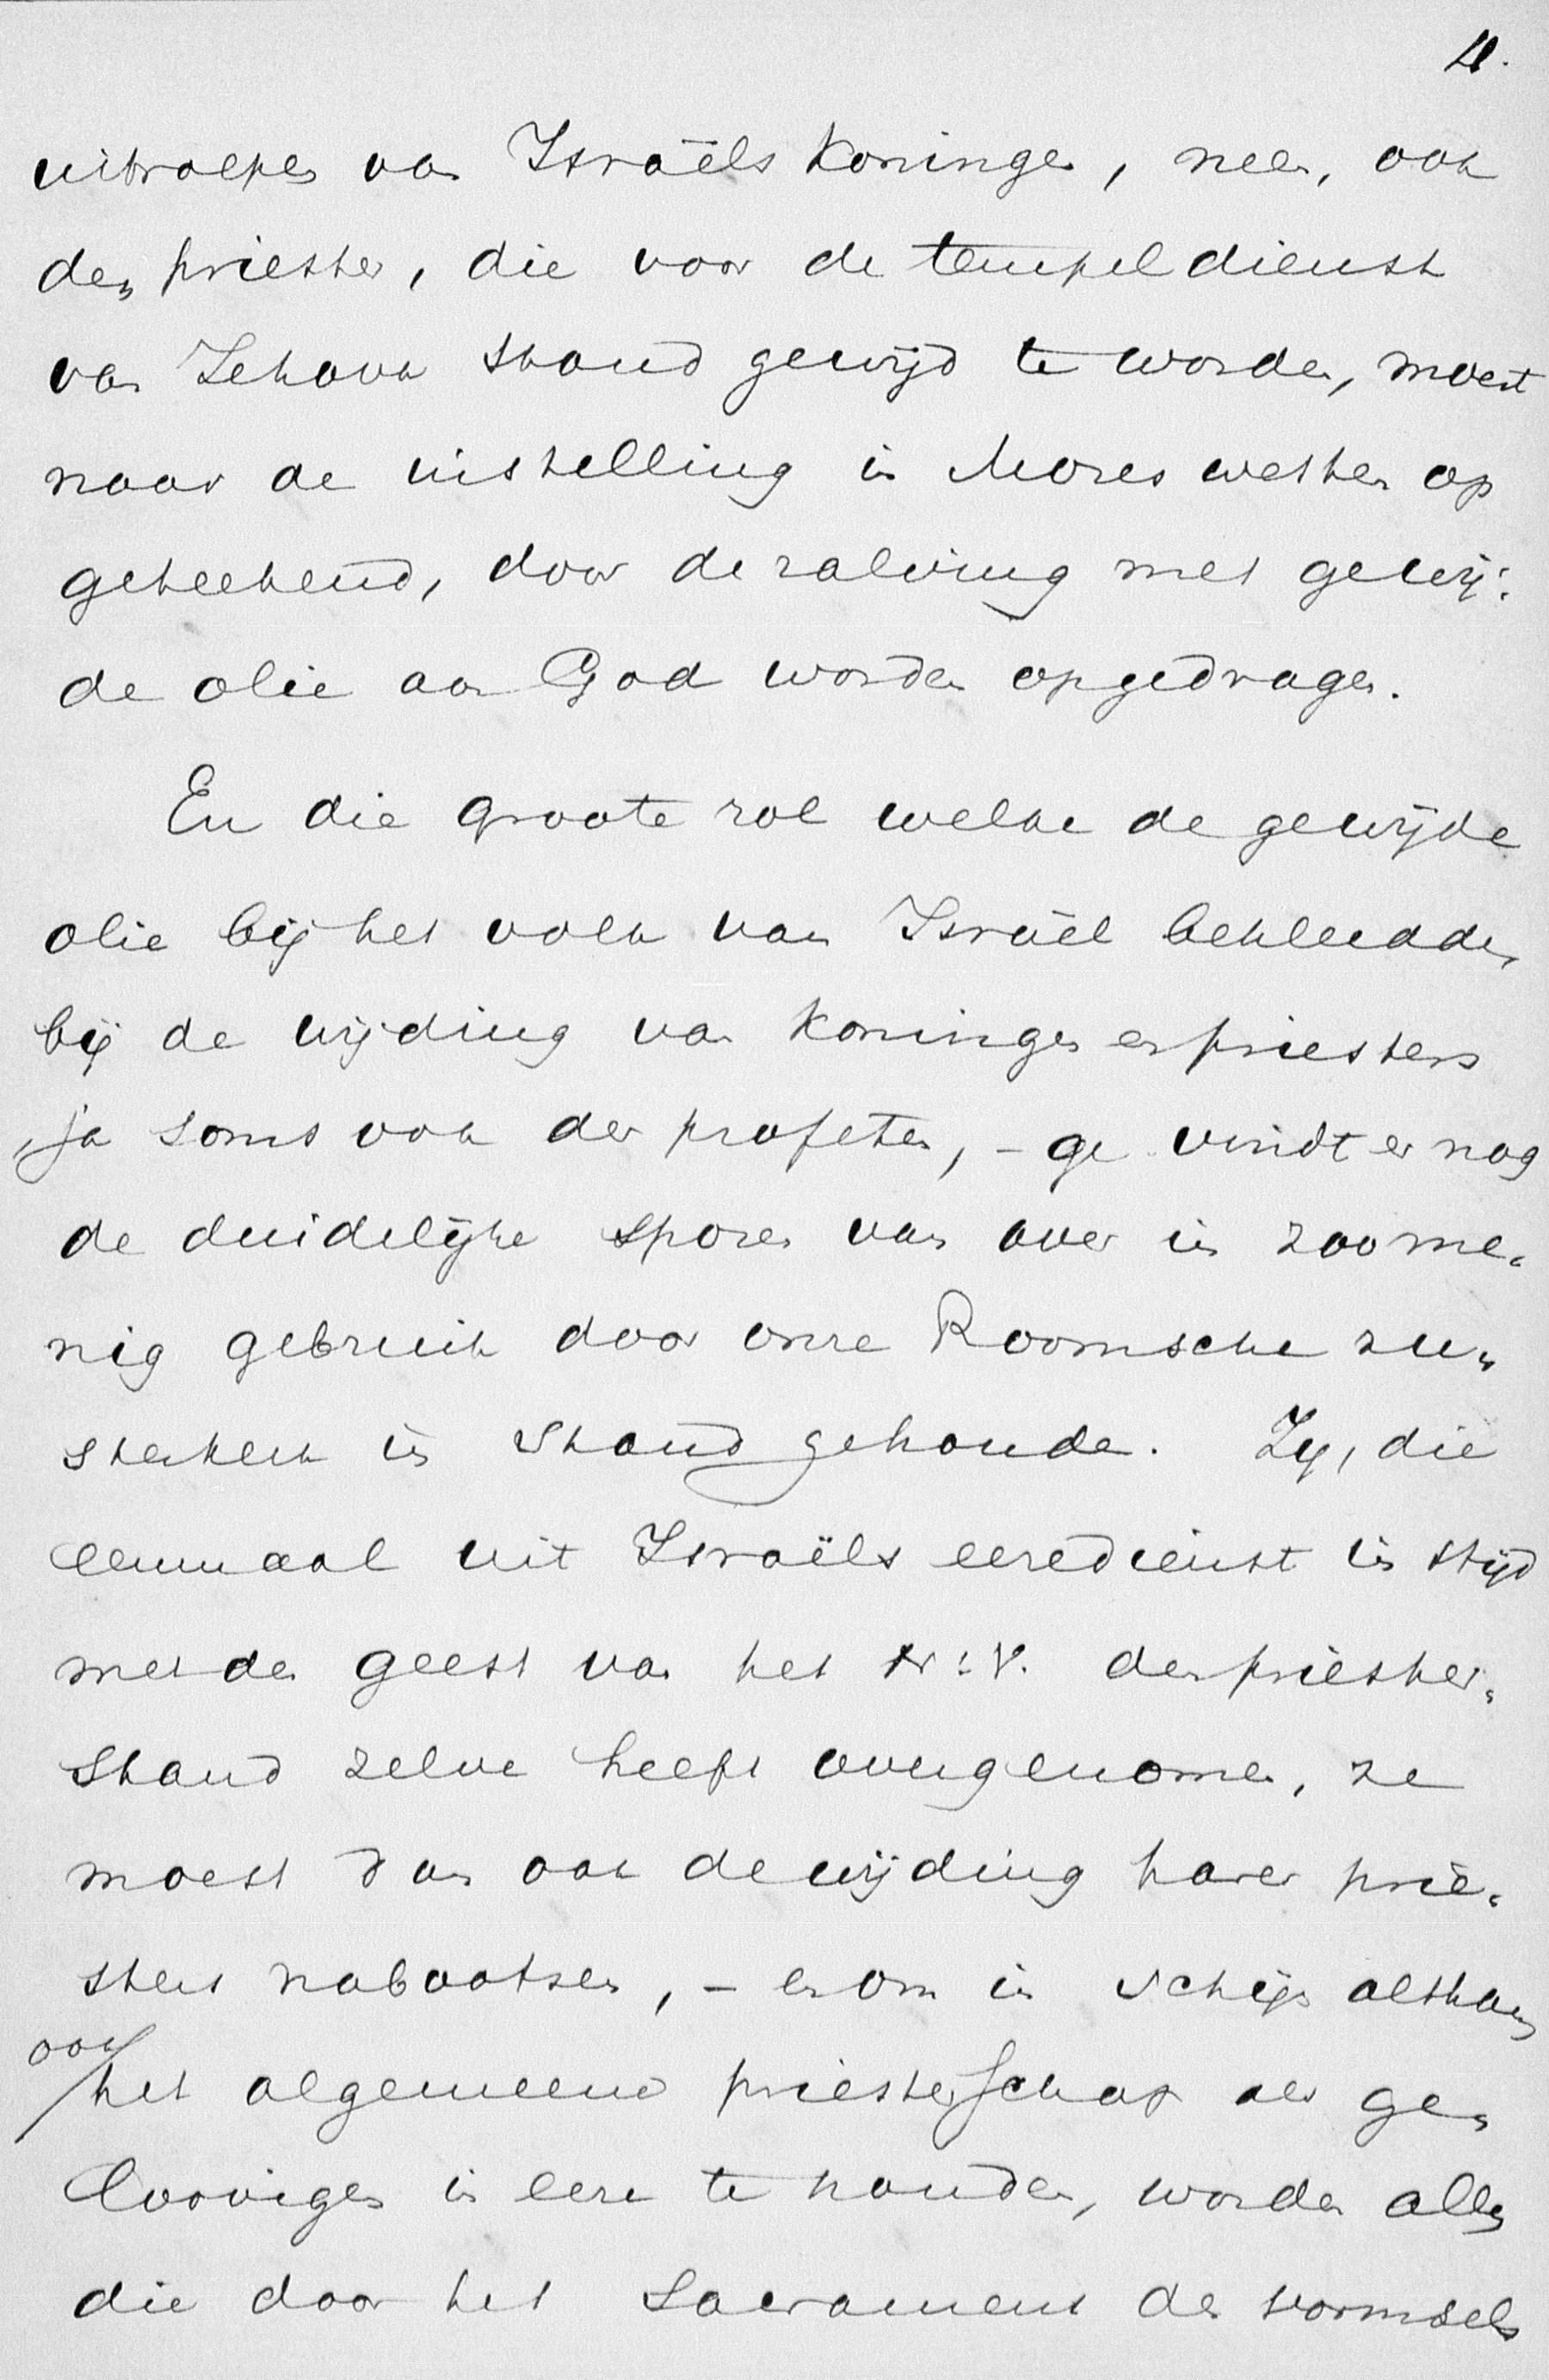 4.
uitroepen van Israëls Koningen, neen, ook
den priester, die voor de tempeldienst
van Jehova stond gewijd te worden, moest
naar de instelling in Mozes wetten op
geteekend, door de zalving met gewij:
de olie aan God worden opgedragen.
En die groote rol welke de gewijde
olie bij het volk van Israël bekleedde,
bij de wijding van Koningen en priesters
ja soms ook der profeten, – ge vindt er nog
de duidelijke sporen van over in zoo me„
nig gebruik door onze Roomsche zu„
sterkerk in stand gehouden. Zij, die
eenmaal uit Israëls eeredienst in strijd
met den geest van het N:V. den priester„
stand zelve heeft overgenomen, ze
moest dan ook de wijding harer prie„
sters nabootsen, – en om in schijn althans
ook
het algemeene priesterschap der ge„
loovigen in eere te houden, worden allen
die door het Sacrament des vormsels